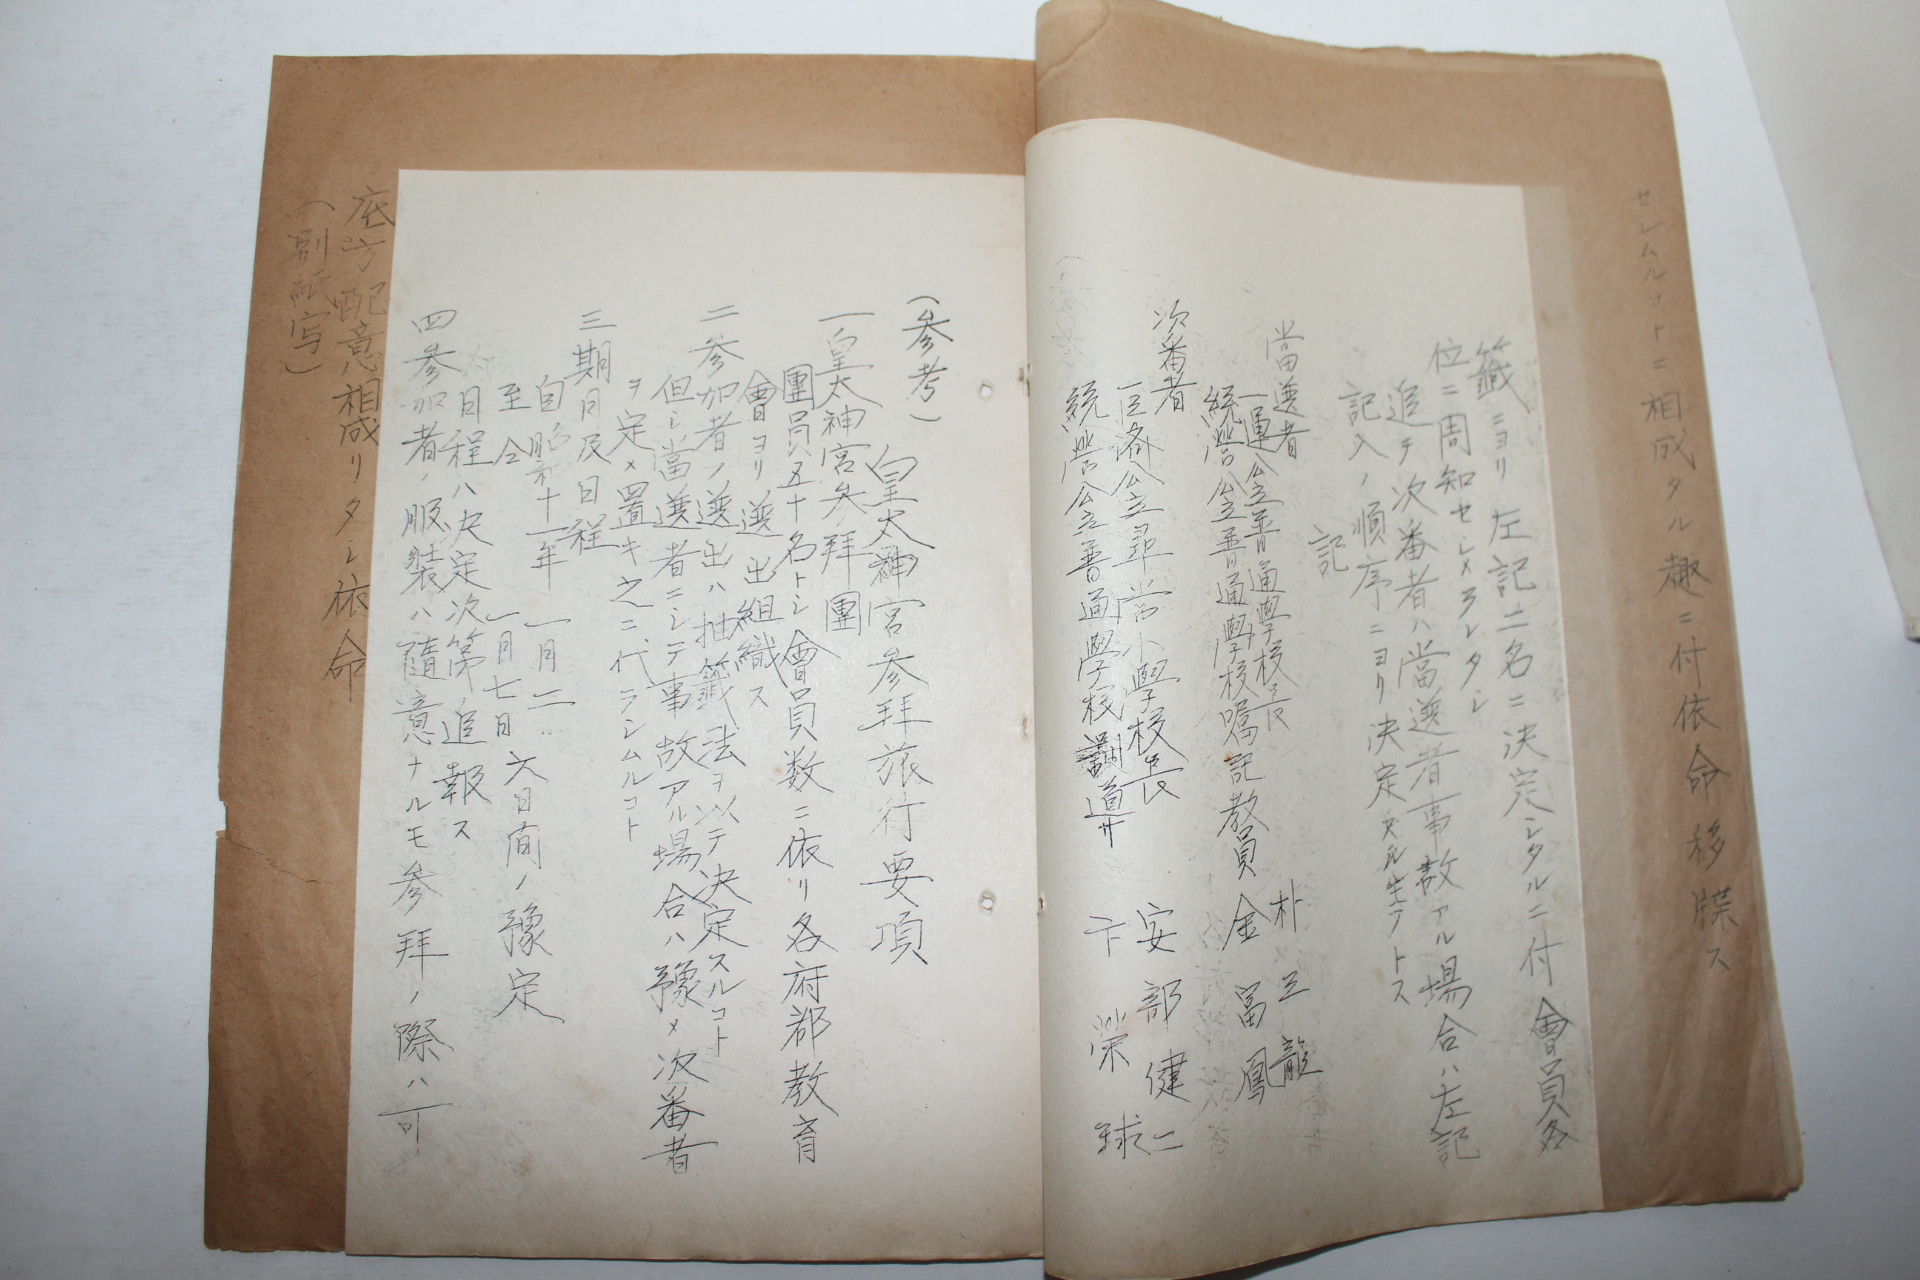 セシムルコトニ相成タル趣ニ付依命移牒ス
籤ニヨリ左記二名ニ決定シタルニ付會員各
位ニ周知セシメラレタシ
追テ次番者ハ當選者事故アル場合ハ左記
記入ノ順序ニヨリ決定
記
當選者
一運公立普通學校長 朴 立 龍
統營公立普通學校嘱託教員 金 富 鳳
次番者
一巨済公立尋常小學校長 安部健二
統營公立普通學校訓導 卞 榮 球
(参考) 皇太神宮参拜旅行要項
一 皇太神宮参拜團
團員五十名トシ會員数ニ依リ各府郡教育
會ヨリ選出組織ス
二 参加者ノ選出ハ抽籤法ヲ以テ決定スルコト
但シ當選者ニシテ事故アル場合ハ豫メ次番者
ヲ定メ置キ之ニ代ラシムルコト
三 期日及日程
自昭和十一年 一月二
至仝 一月七日 六日間ノ豫定
日程ハ決定次第追報ス
四 参加者ノ服装ハ随意ナルモ参拜ノ際ハ可
底方配意相成リタシ依命
(別紙写)